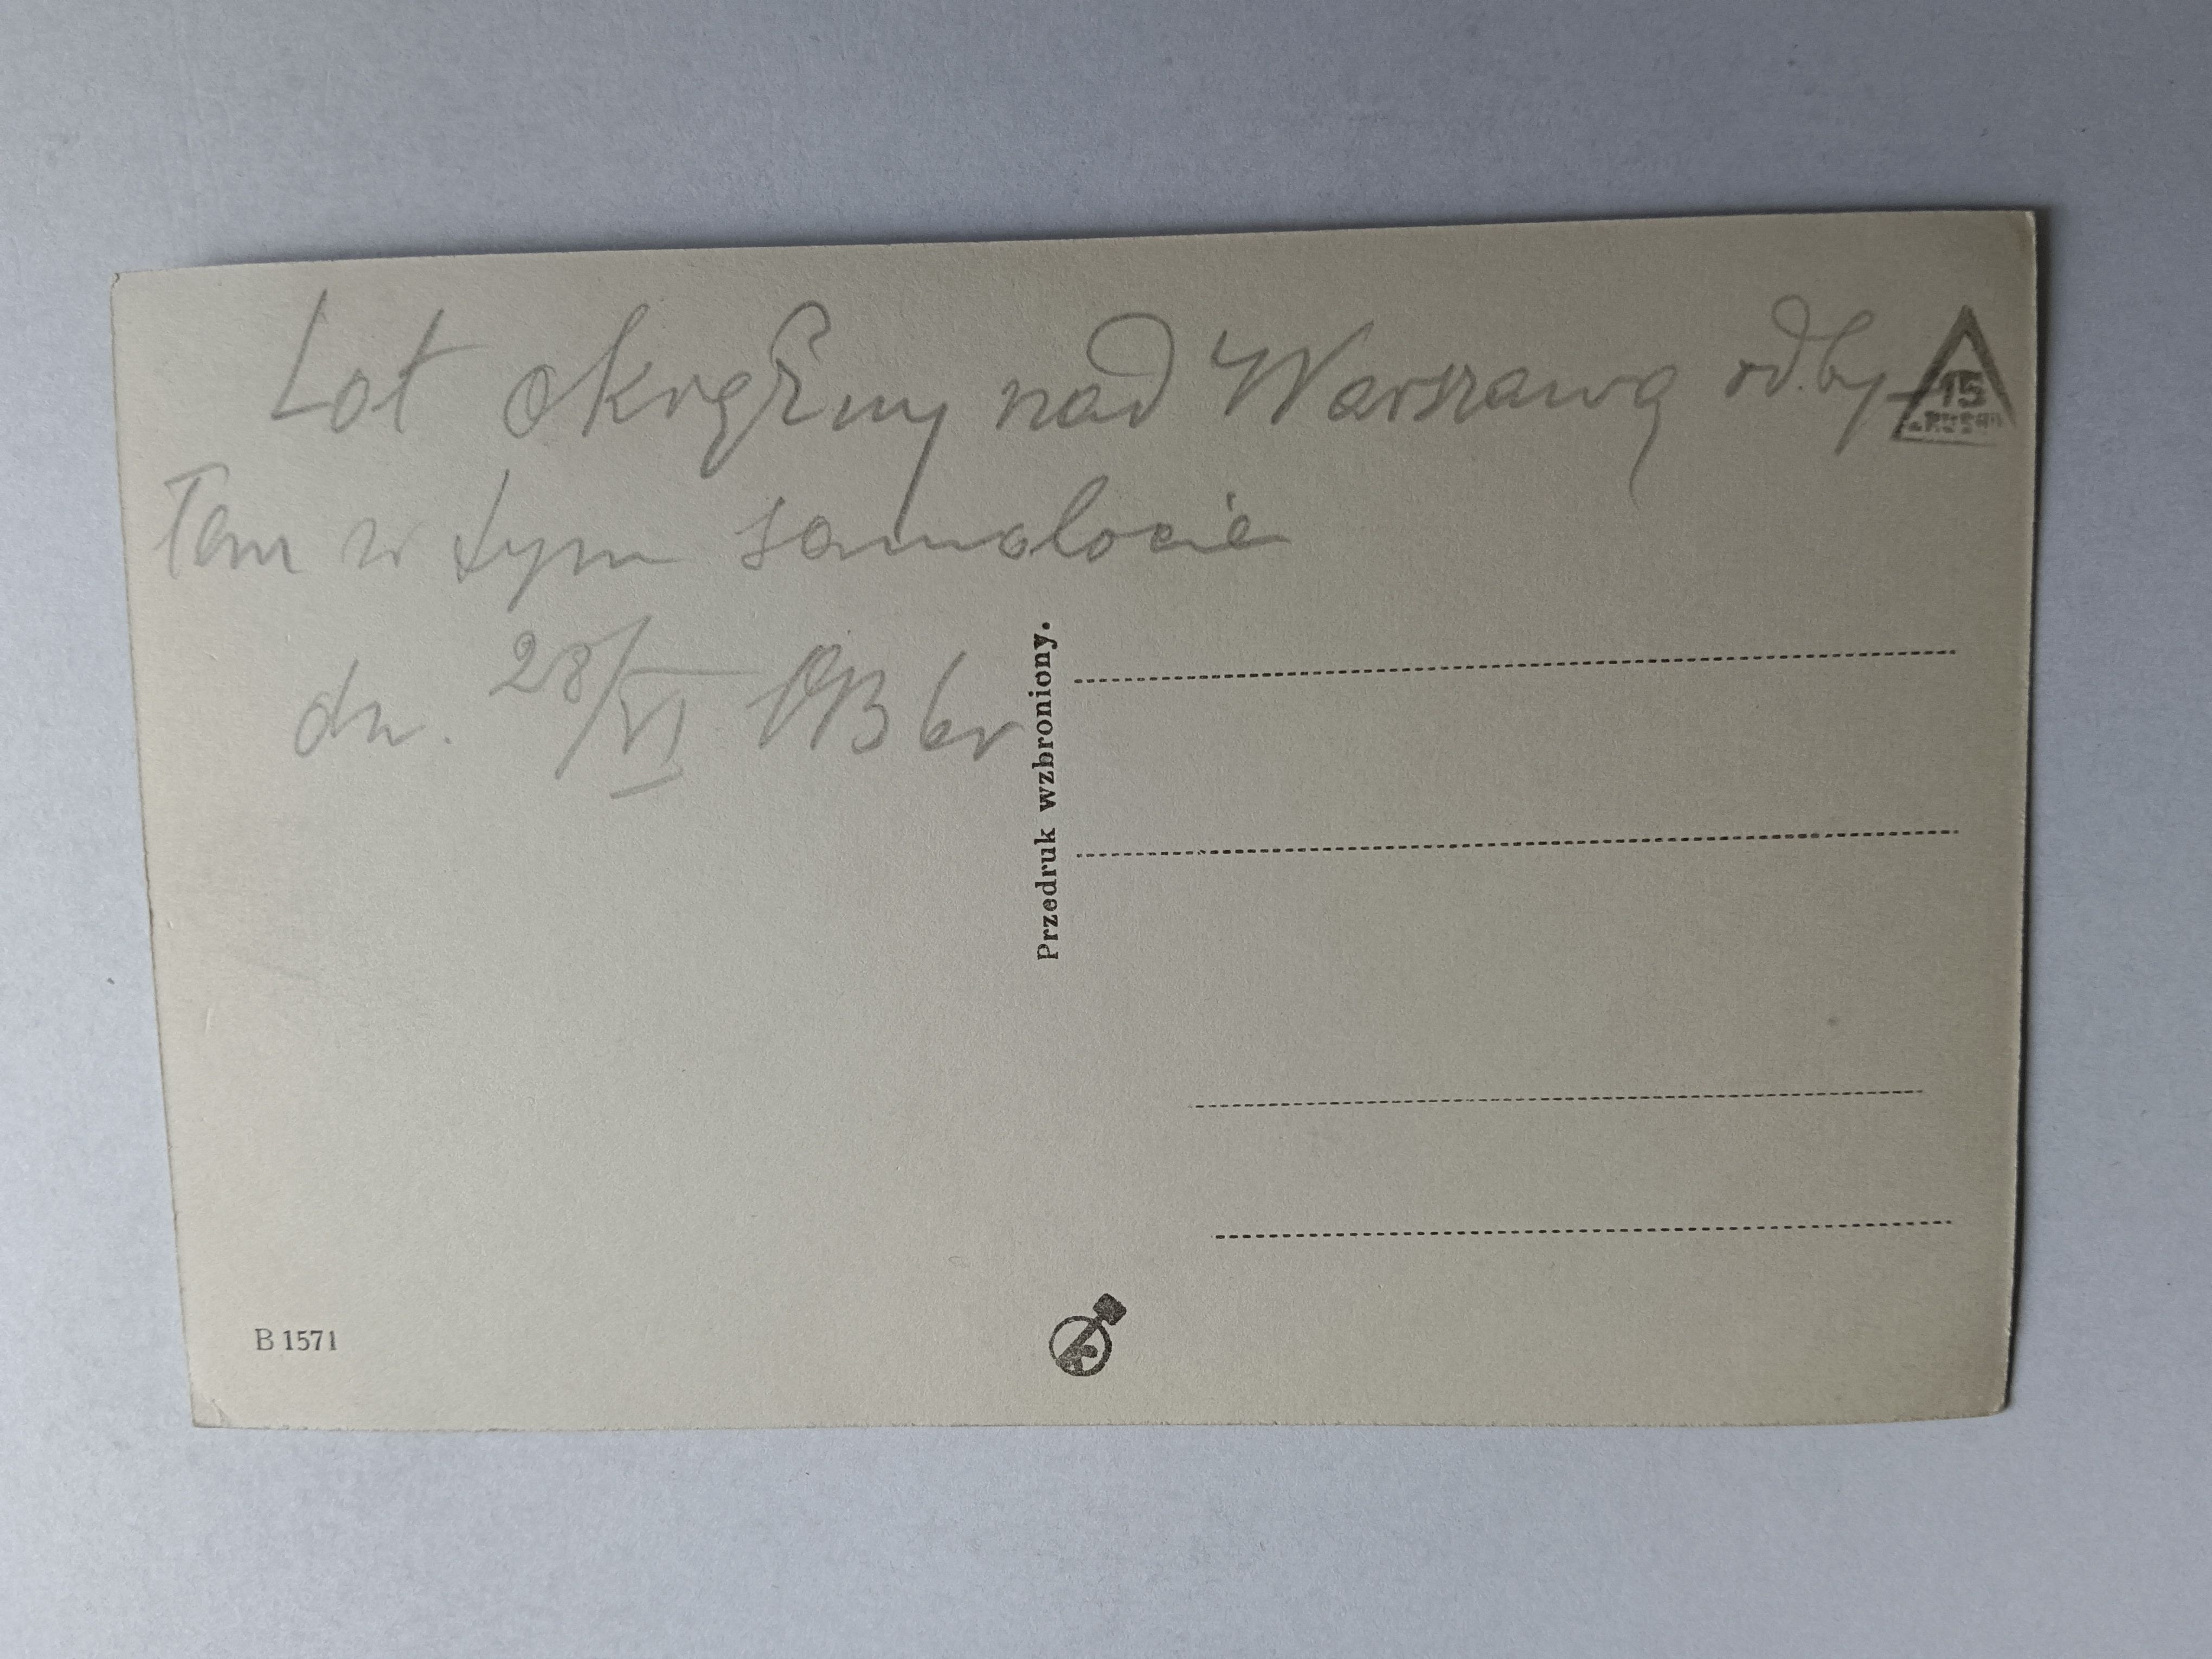 Lot okrężny nad Warszawą odby-
łem w tym samolocie
dn. 28/VI 1936r
15
Przedruk wzbroniony.
B 1571